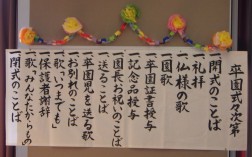 卒園式次第
開式のことば
一 礼拝
一 仏様の歌
一 国歌
一 卒園証書授与
一 記念品授与
一 園長お祝いのことば
一 送ることば
一 卒園児を送る歌
一 お別れのことば
一 歌「いつまでも」
一 保護者謝辞
一 歌「みんなだからもの」
閉式のことば